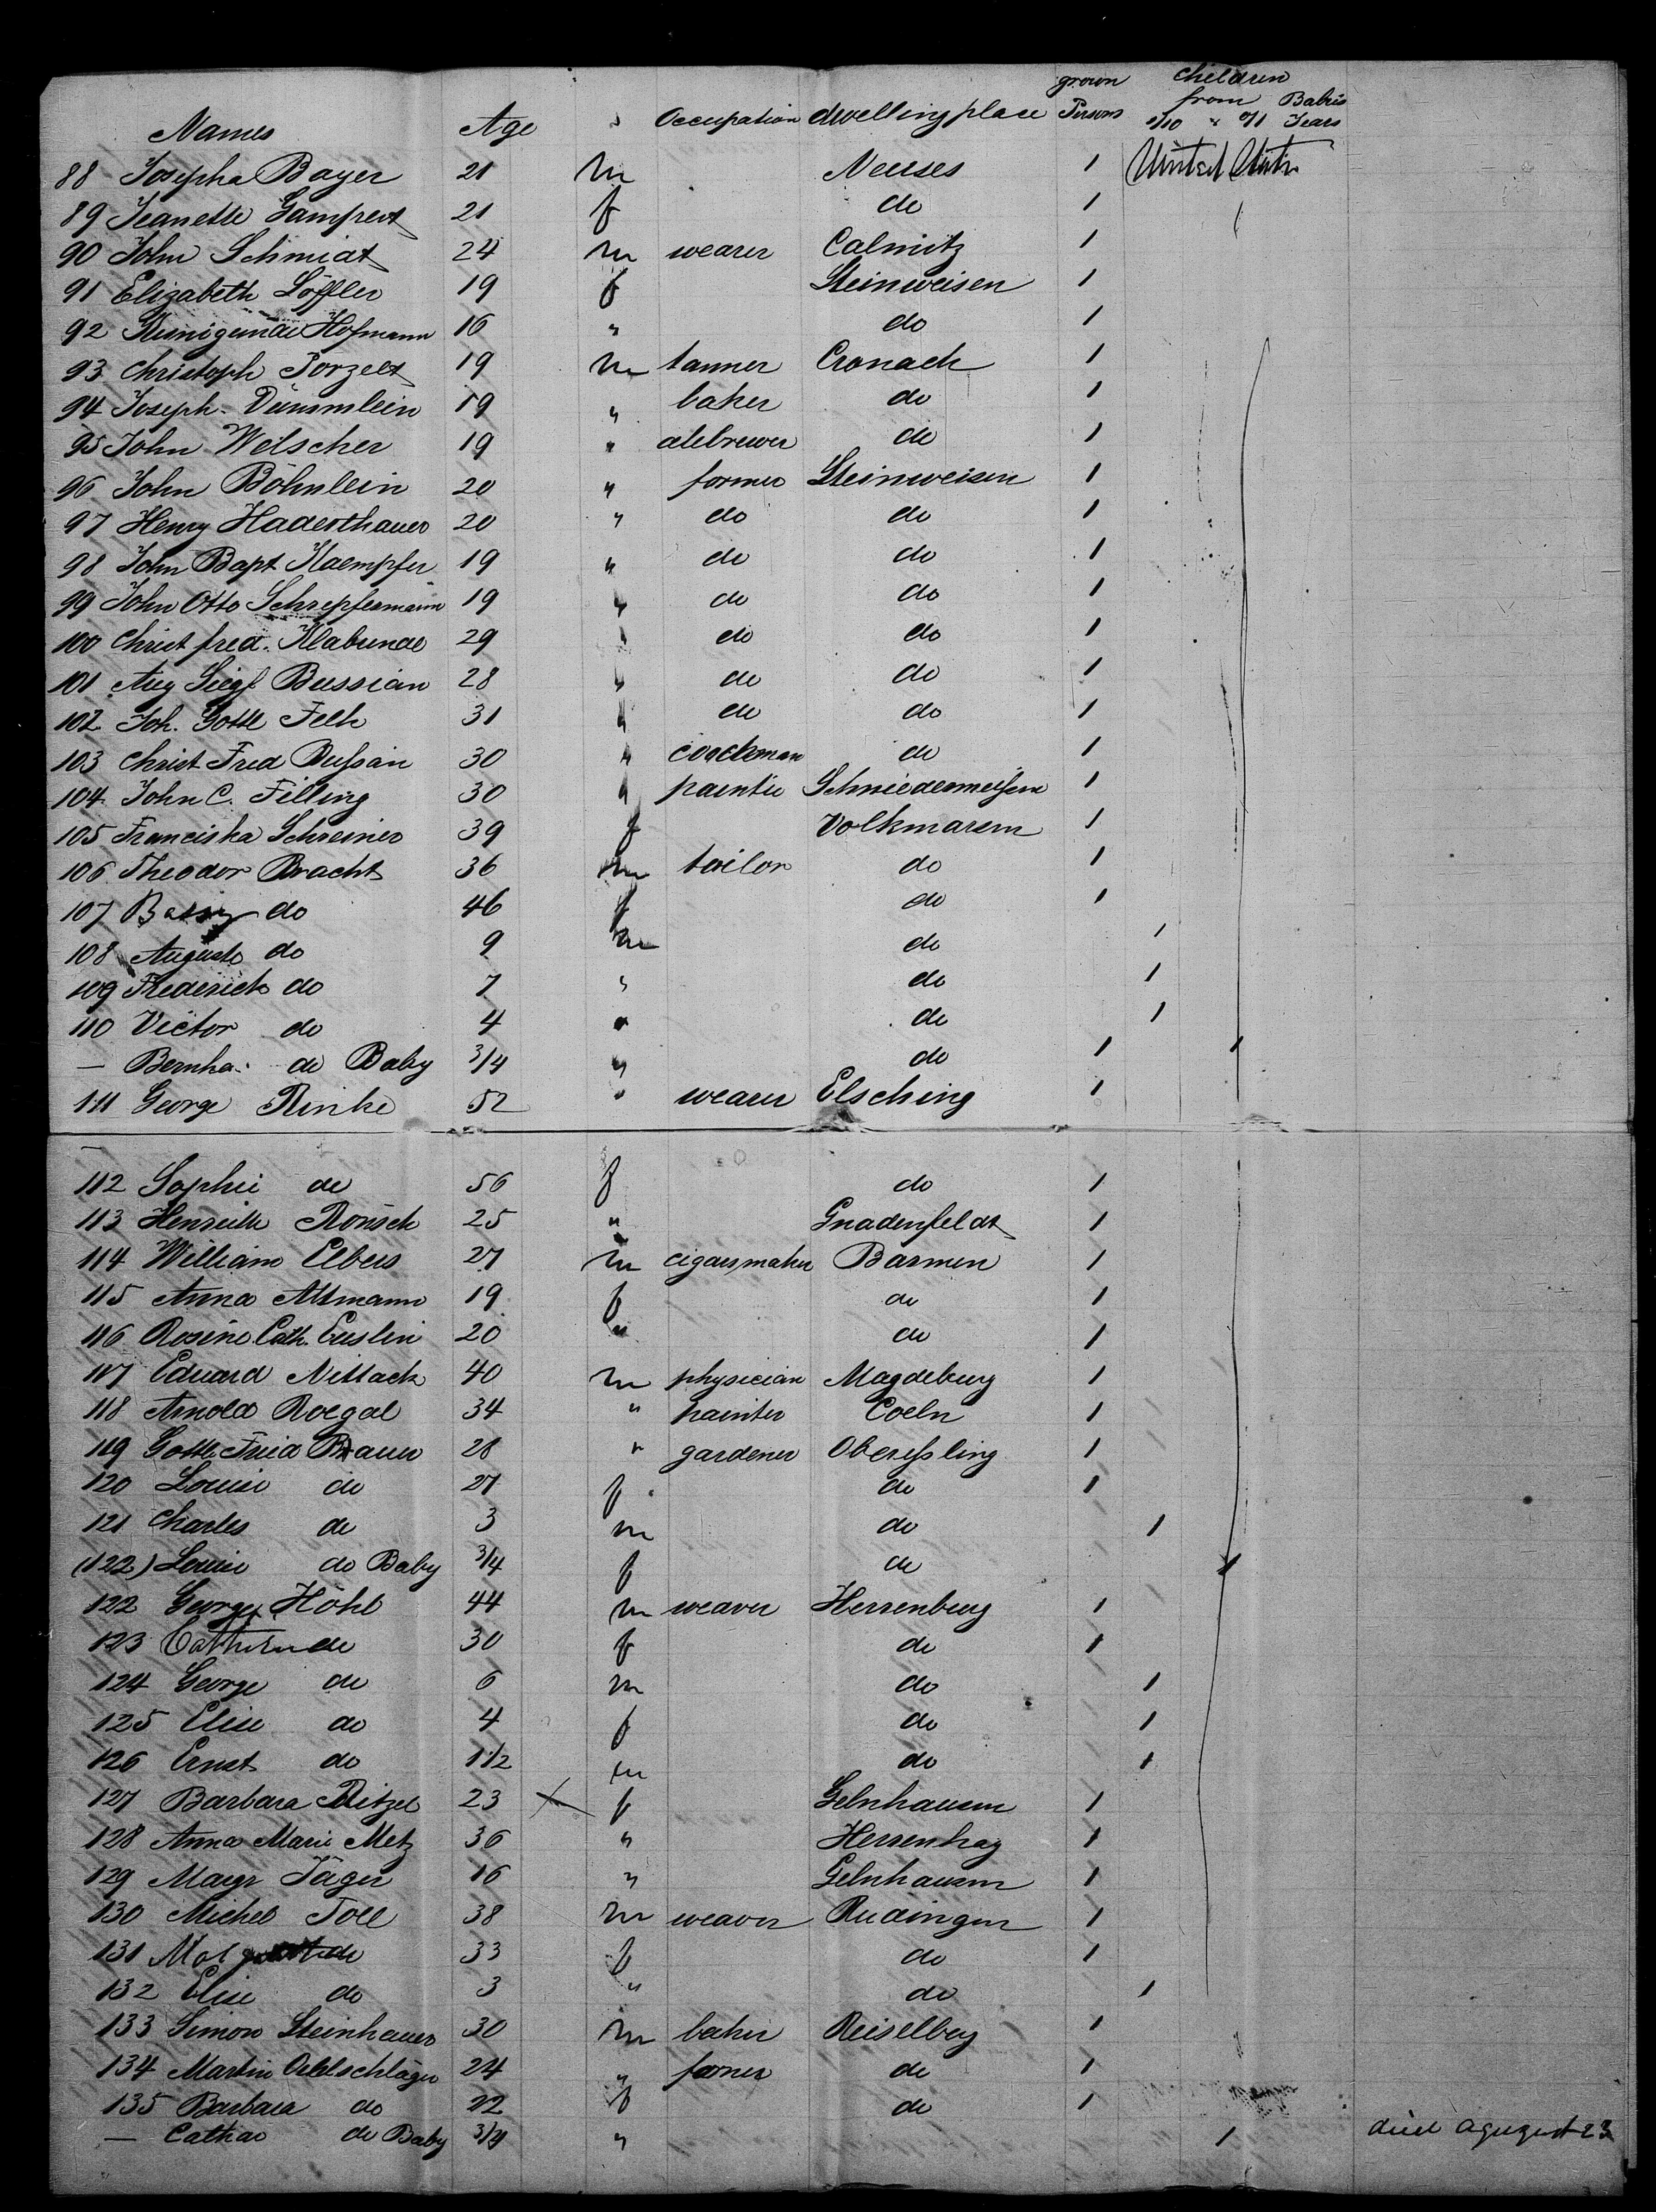 grown children
Names Age Occupation dwelling place Persons from Babies
1/10 " 0/1 Years
88 Josepha Bayer 21 m Neuses 1 United States
89 Jeanette Gampert 21 f do 1
90 John Schmidt 24 m weaver Calmitz 1
91 Elizabeth Löffler 19 f Steinweisen 1
92 Kunigunde Hofmann 16 " do 1
93 Christoph Porzelt 19 m tanner Cronach 1
94 Joseph Dümmlein 19 " baker do 1
95 John Welscher 19 " alebrewer do 1
96 John Böhnlein 20 " former Steinweisen 1
97 Henry Haderthauer 20 " do do 1
98 John Bapt Kaempfer 19 " do do 1
99 John Otto Schrepfermann 19 " do do 1
100 Christ fred. Klabunde 29 " do do 1
101 Aug Siegf Bussian 28 " do do 1
102 Joh. Gottl 31 " do do 1
103 Christ Fred Bussian 30 " coachman do 1
104 John C. Filling 30 " painter 1
105 Franciska Schreiner 39 f Volkmarsen 1
106 Theodor Bracht 36 m tailor do 1
107 do 46 f do 1
108 Auguste do 9 m do 1
109 Frederick do 7 " do 1
110 Victor do 4 " do 1
— Bernha. do Baby 3/4 " do 1 1
111 George Rinke 52 " weaver Elsching 1
112 Sophie do 56 f do 1
113 Henriette Rönsch 25 " Gnadenfeldt 1
114 William Elbers 27 m cigarsmaker Barmen 1
115 Anna Altmann 19 f do 1
116 Rosine Cath. Euslin 20 " do 1
117 Eduard Nittack 40 m physician Magdeburg 1
118 Arnold Roegal 34 " painter Coeln 1
119 Gottl. Fried Brauer 28 " gardener Oberessling 1
120 Louise do 27 f do 1
121 Charles do 3 m do 1
(122) Louise do Baby 3/4 f do 1
122 George Höhl 44 m weaver Herrenburg 1
123 Catherine do 30 f do 1
124 George do 6 m do 1
125 Elise do 4 f do 1
126 Ernst do 1 1/2 m do 1
127 Barbara Ritzel 23 X f Gelnhausen 1
128 Anna Marie Metz 36 " Herrenhag 1
129 Margr Jäger 16 " Gelnhausen 1
130 Michel Toll 38 m weaver Rudingen 1
131 do 33 f do 1
132 Elise do 3 " do 1
133 Simon Steinhauer 30 m baker Reiselberg 1
134 Martin Oehlschläger 24 " former do 1
135 Barbara do 22 f do 1
— Cathar do Baby 3/4 " 1 died agugust 23